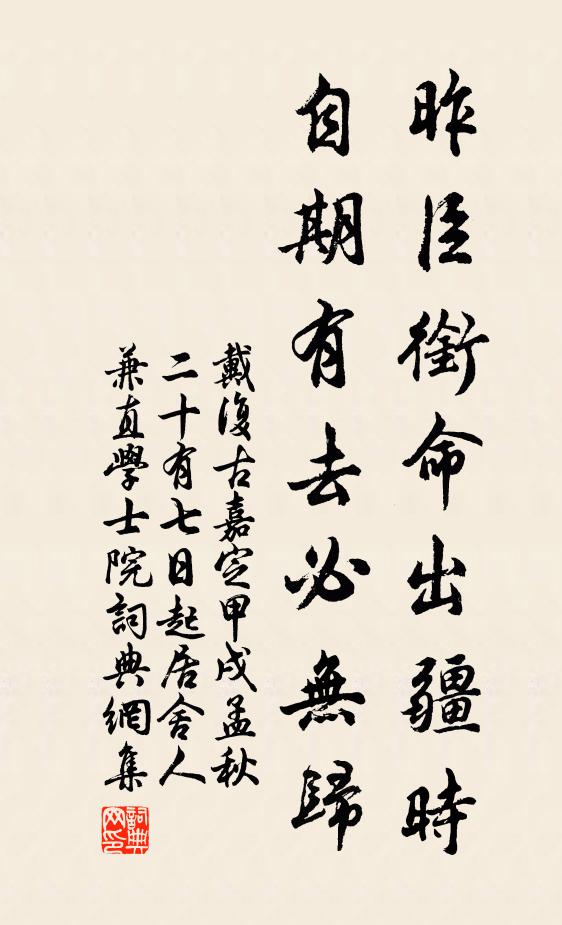 昨臣銜命出疆時
自期有去必無歸
戴復古嘉定甲戌孟秋
二十有七日起居舍人
兼直學士院詞典網集
詞典網印